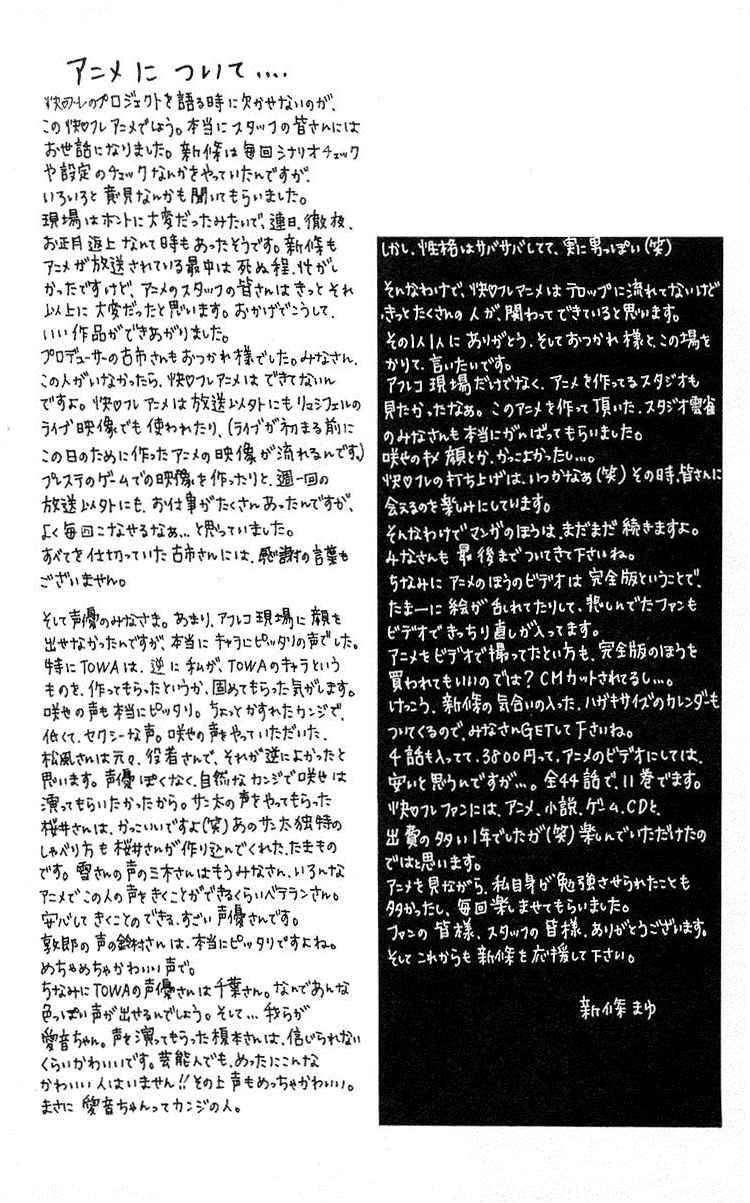 アニメに ついて....
快♡フレのプロジェクトを語る時に欠かせないのが、
この快♡フレアニメでしょう。本当にスタッフの皆さんには
お世話になりました。新條は毎回シナリオチェック
や設定のチェックなんかをやっていたんですが、
いろいろと意見なんかも聞いてもらいました。
現場はホントに大変だったみたいで、連日、徹夜、
お正月返上なんて時もあったそうです。新條も
アニメが放送されている最中は死ぬ程、忙がし
かったですけど、アニメのスタッフの皆さんはきっとそれ
以上に大変だったと思います。おかげでこうして、
いい作品ができあがりました。
プロデューサーの古市さんもおつかれ様でした。みなさん、
この人がいなかったら、快♡フレアニメはできてないん
ですよ。快♡フレアニメは放送以外にもリュシフェルの
ライブ映像でも使われたり、(ライブが初まる前に
この日のために作ったアニメの映像が流れるんです。)
プレステのゲームでの映像を作ったりと、週一回の
放送以外にも、お仕事がたくさんあったんですが、
よく毎回こなせるなぁ...と思っていました。
すべてを仕切っていた古市さんには、感謝の言葉も
ございません。
そして声優のみなさま。あまり、アフレコ現場に顔を
出せなかったんですが、本当にキャラにピッタリの声でした。
特にTOWAは、逆に私が、TOWAのキャラという
ものを、作ってもらったというか、固めてもらった気がします。
咲也の声も本当にピッタリ。ちょっとかすれたカンジで、
低くて、セクシーな声。咲也の声をやっていただいた、
松風さんは元々、役者さんで、それが逆によかったと
思います。声優ぽくなく、自然なカンジで咲也は
演ってもらいたかったから。サン太の声をやってもらった
桜井さんは、かっこいいですよ(笑)あのサン太独特の
しゃべり方も桜井さんが作り込んでくれた、たまもの
です。雪さんの声の三木さんはもうみなさん、いろんな
アニメでこの人の声をきくことができるくらいベテランさん。
安心してきくことのできる、すごい声優さんです。
敦郎の声の鈴村さんは、本当にピッタリですよね。
めちゃめちゃかわいい声で。
ちなみにTOWAの声優さんは千葉さん。なんであんな
色っぽい声が出せるんでしょう。そして...我らが
愛音ちゃん。声を演ってもらった榎本さんは、信じられない
くらいかわいいです。芸能人でも、めったにこんな
かわいい人はいません!!その上声もめっちゃかわいい。
まさに愛音ちゃんってカンジの人。
しかし、性格はサバサバしてて、実に男っぽい(笑)
そんなわけで、快♡フレアニメはテロップに流れてないけど
きっとたくさんの人が、関わってできていると思います。
その1人1人にありがとう、そしておつかれ様と、この場を
かりて、言いたいです。
アフレコ現場だけでなく、アニメを作ってるスタジオも
見たかったなぁ。このアニメを作って頂いた、スタジオ雲雀
のみなさんも本当にがんばってもらいました。
咲也のキメ顔とか、かっこよかったし...。
快♡フレの打ち上げは、いつかなぁ(笑)その時、皆さんに
会えるのを楽しみにしています。
そんなわけでマンガのほうは、まだまだ続きますよ。
みなさんも最後までついてきて下さいね。
ちなみにアニメのほうのビデオは完全版ということで、
たまーに絵が乱れてたりして、悲しんでたファンも
ビデオできっちり直しが入ってます。
アニメをビデオで撮ってたという方も、完全版のほうを
買われてもいいのでは?CMカットされてるし...。
けっこう、新條の気合いの入った、ハガキサイズのカレンダーも
ついてくるので、みなさんGETして下さいね。
4話も入ってて、3800円って、アニメのビデオにしては、
安いと思うんですが...。全44話で、11巻でます。
快♡フレファンには、アニメ、小説、ゲーム、CDと、
出費の多い1年でしたが(笑)楽しんでいただけたの
ではと思います。
アニメを見ながら、私自身が勉強させられたことも
多かったし、毎回楽しませてもらいました。
ファンの皆様、スタッフの皆様、ありがとうございます。
そしてこれからも新條を応援して下さい。
新條まゆ